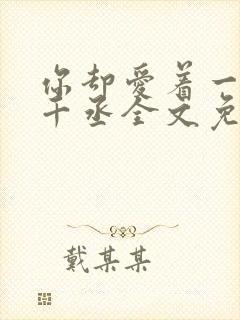 你却爱着一
十丞全文免
戴某某